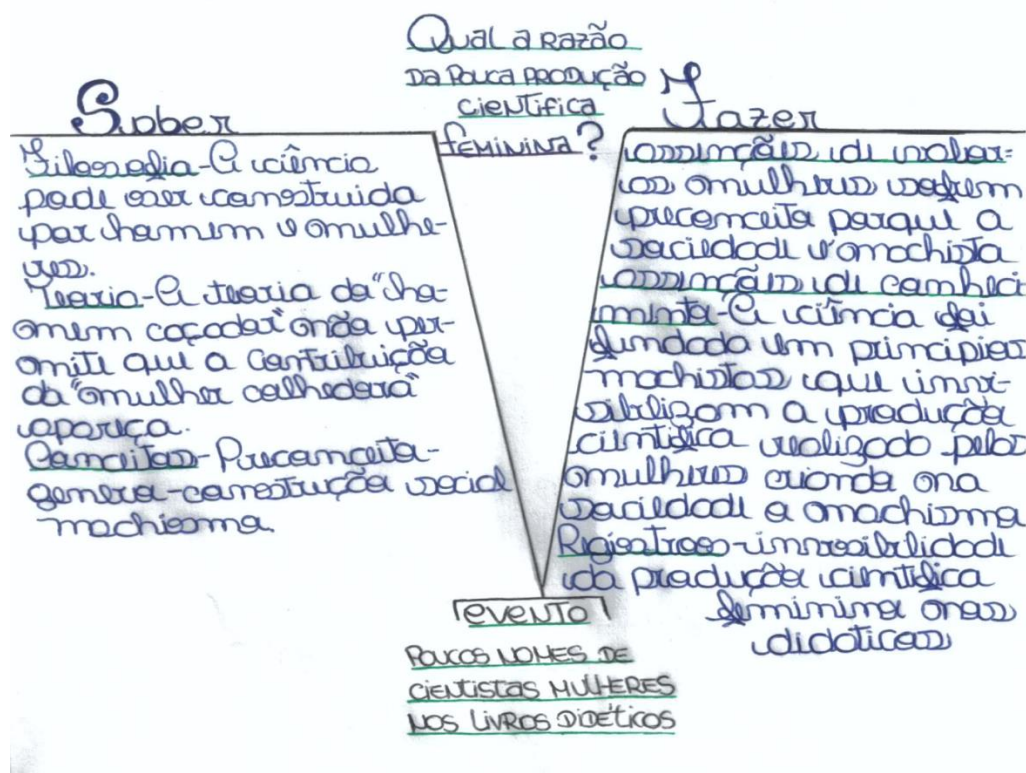 Qual a Razão
da Pouca Produção
Científica
feminina?
Saber
Filosofia-A ciência
pode ser construída
por homem e mulhe-
res.
Teoria-A teoria do "ho-
mem caçador" não per-
mite que a contribuição
da "mulher colhedora"
apareça.
Conceitos-Preconceito-
genero-construção social
machismo.
Fazer
asserções de valor=
as mulheres sofrem
preconceito porque a
sociedade é machista
asserções de conheci
mento-A ciência foi
fundada em princípios
machistas que invi-
sibilizam a produção
científica realizado pelas
mulheres criando na
sociedade o machismo
Registros-invisibilidade
da produção científica
feminina nos
didáticos
evento
Poucos nomes de
cientistas mulheres
nos livros didéticos